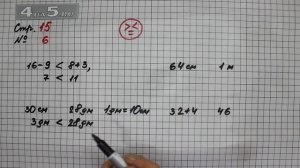 4 из 5
Стр. 15
№ 6
16-9 < 8+3,
7 < 11
64 см 1 м
30 см 28 дм 1 дм = 10 см 32+4 46
3 дм < 28 дм